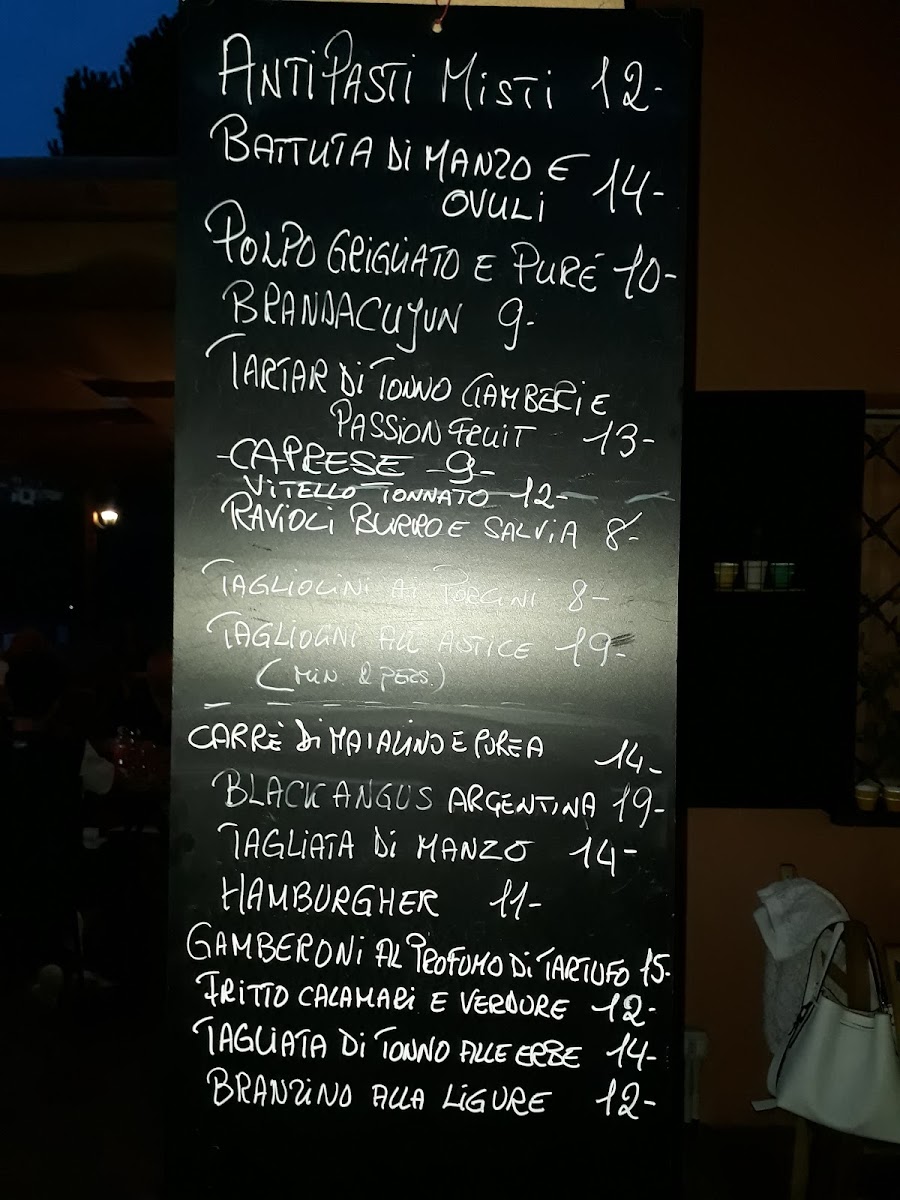 ANTIPASTI MISTI 12-
BATTUTA DI MANZO E
OVULI 14-
POLPO GRIGLIATO E PURÉ 10-
BRANDACUJUN 9-
TARTAR DI TONNO GAMBERI E
PASSION FRUIT 13-
-CAPRESE -9-
VITELLO TONNATO 12-
RAVIOLI BURRO E SALVIA 8-
TAGLIOLINI AI PORCINI 8-
TAGLIOLINI ALL ASTICE 19-
(MIN. 2 PERS.)
CARRÈ DI MAIALINO E PUREA 14-
BLACK ANGUS ARGENTINA 19-
TAGLIATA DI MANZO 14-
HAMBURGHER 11-
GAMBERONI AL PROFUMO DI TARTUFO 15-
FRITTO CALAMARI E VERDURE 12-
TAGLIATA DI TONNO ALLE ERBE 14-
BRANZINO ALLA LIGURE 12-